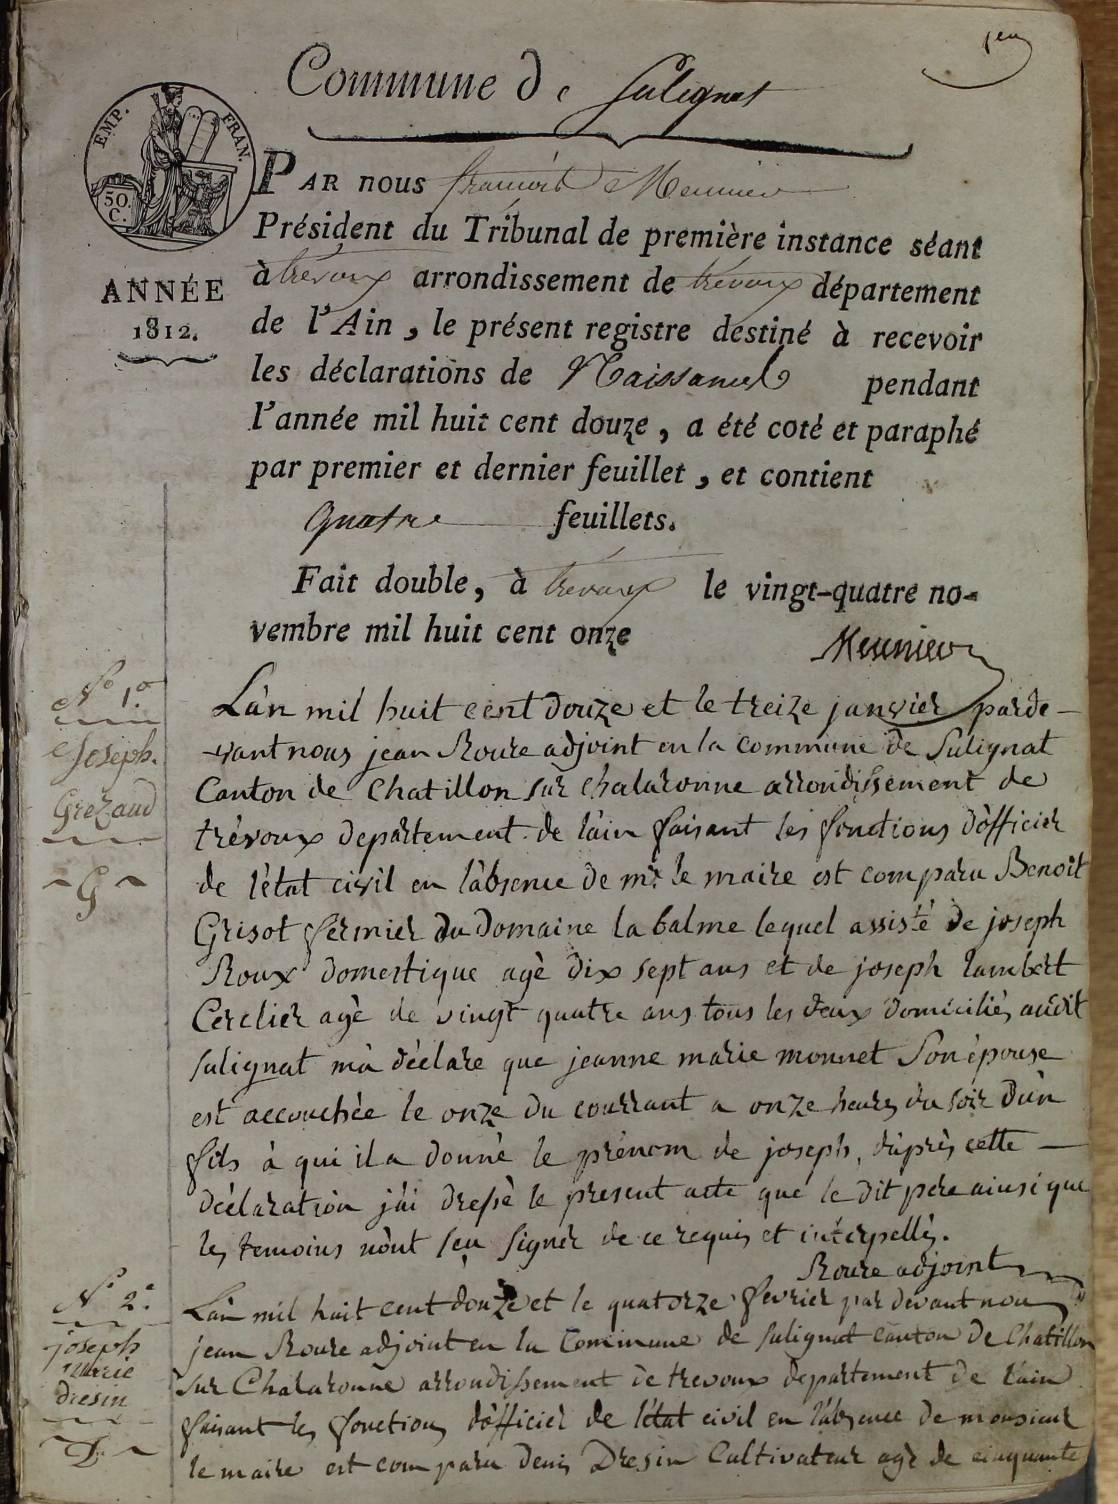 Commune de Sulignat
EMP. FRAN.
50.
C.
ANNÉE
1812.
PAR nous françois Meunier
Président du Tribunal de première instance séant
à trévoux arrondissement de trévoux département
de l'Ain, le présent registre destiné à recevoir
les déclarations de Naissances pendant
l'année mil huit cent douze, a été coté et paraphé
par premier et dernier feuillet, et contient
quatre feuillets.
Fait double, à trévoux le vingt-quatre no-
vembre mil huit cent onze
Meunier
N° 1.°
Joseph.
G
L'an mil huit cent douze et le treize janvier parde-
vant nous jean Roure adjoint en la commune de Sulignat
Canton de Chatillon sur chalaronne arrondissement de
trévoux departement de l'ain faisant les fonctions d'officier
de l'état civil en l'absence de mr. le maire est comparu Benoit
Grisot fermier du Domaine la balme lequel assisté de joseph
Roux domestique agè dix sept ans et de joseph lambert
Cerclier agè de vingt quatre ans tous les deux domiciliés audit
sulignat m'a dèclare que jeanne marie monnet son épouse
est accouchée le onze du courrant a onze heures du soir d'un
fils à qui il a donné le prénom de joseph, d'après cette
déclaration j'ai dressè le present acte que le dit pere ainsi que
les temoins n'ont seu signer de ce requis et interpellés.
Roure adjoint
N° 2.°
joseph
marie
dresin
D.
L'an mil huit cent douze et le quatorze fevrier par devant nous
jean Roure adjoint en la Commune de sulignat canton de Chatillon
sur Chalaronne arrondissement de trevoux departement de l'ain
faisant les fonctions d'officier de l'état civil en l'absence de monsieur
le maire est comparu denis Dresin Cultivateur agé de cinquante